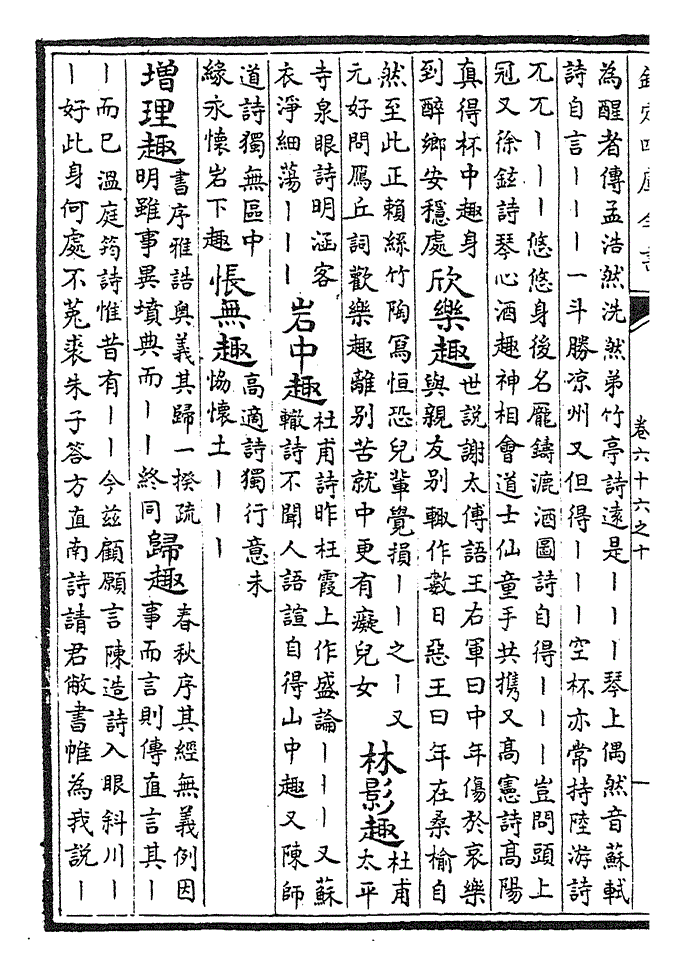 欽定四庫全書
卷六十六之十
為醒者傳孟浩然洗然弟竹亭詩遠是丨丨丨琴上偶然音蘇軾
詩自言丨丨丨一斗勝凉州又但得丨丨丨空杯亦常持陸游詩
兀兀丨丨丨悠悠身後名龎鑄漉酒圖詩自得丨丨丨豈問頭上
冠又徐鉉詩琴心酒趣神相會道士仙童手共携又高憲詩高陽
真得杯中趣身
到醉鄉安穩處
欣樂趣
世說謝太傅語王右軍曰中年傷於哀樂
與親友别輙作數日惡王曰年在桑榆自
然至此正賴絲竹陶寫恒恐兒輩覺損丨丨之丨又
元好問鴈丘詞歡樂趣離别苦就中更有癡兒女
林影趣
杜甫
太平
寺泉眼詩明涵客
衣淨細蕩丨丨丨
岩中趣
杜甫詩昨枉霞上作盛論丨丨丨又蘇
轍詩不聞人語諠自得山中趣又陳師
道詩獨無區中
緣永懷岩下趣
悵無趣
高適詩獨行意未
恊懷土丨丨丨
增理趣
書序雅誥奥義其歸一揆疏
明雖事異墳典而丨丨終同
歸趣
春秋序其經無義例因
事而言則傳直言其丨
丨而已溫庭筠詩惟昔有丨丨今兹顧願言陳造詩入眼斜川丨
丨好此身何處不菟裘朱子答方直南詩請君敝書帷為我說丨